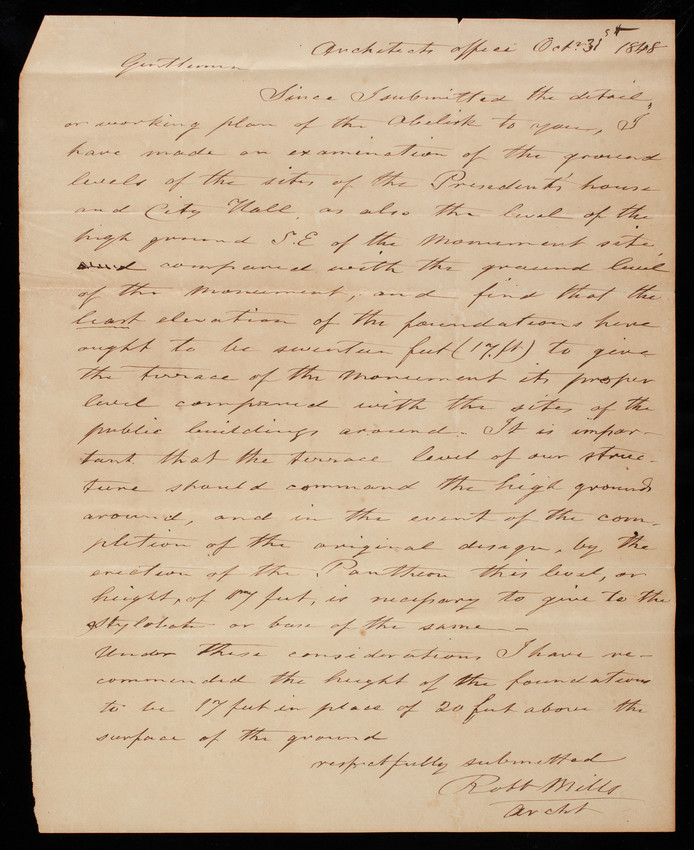 Architects office Oct. 31st 1848
Gentlemen
Since I submitted the detail,
or working plan of the Obelisk to you, I
have made an examination of the ground
levels of the sites of the President's house
and City Hall, as also the level of the
high ground S.E of the Monument site,
compared with the ground level
of the Monument, and find that the
least elevation of the foundations here
ought to be seventeen feet (17 ft) to give
the terrace of the Monument its proper
level compared with the sites of the
public buildings around. It is impor-
tant that the terrace level of our struc-
ture should command the high grounds
around, and in the event of the com-
pletion of the original design, by the
erection of the Pantheon this level, or
height, of feet, is necessary to give to the
stylobate or base of the same—
Under these considerations I have re-
commended the height of the foundations
to be 17 feet in place of 20 feet above the
surface of the ground
respectfully submitted
Robt Mills
Archt